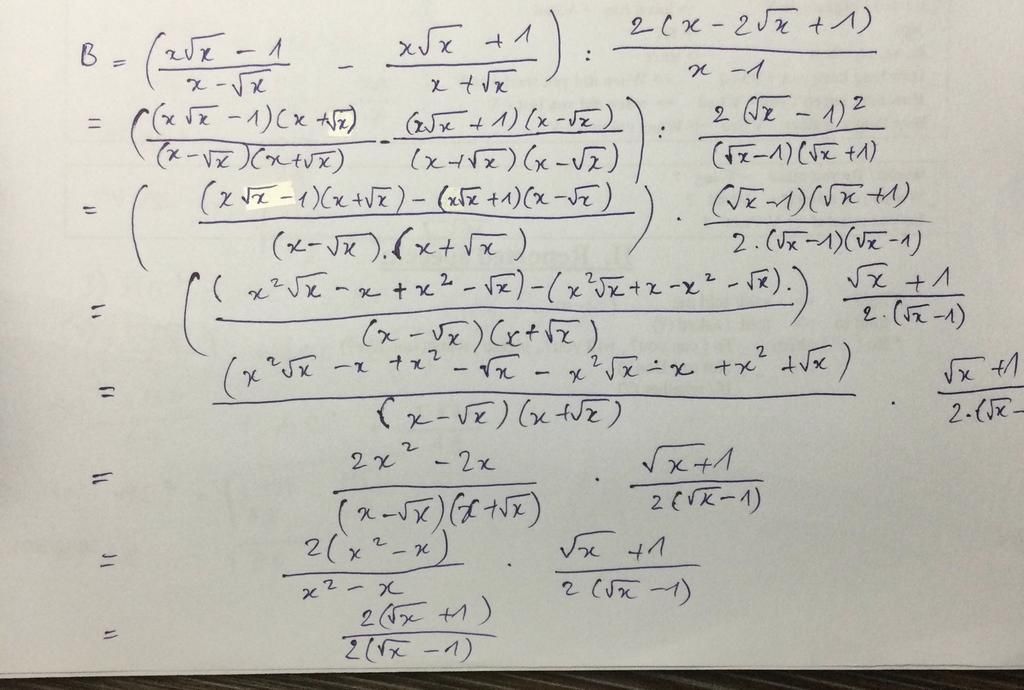 B = (x√x - 1 / x - √x - x√x + 1 / x + √x) : 2(x - 2√x + 1) / x - 1
= ((x√x - 1)(x + √x) / (x - √x)(x + √x) - (x√x + 1)(x - √x) / (x + √x)(x - √x)) : 2(√x - 1)² / (√x - 1)(√x + 1)
= ((x√x - 1)(x + √x) - (x√x + 1)(x - √x) / (x - √x).(x + √x)) . (√x - 1)(√x + 1) / 2.(√x - 1)(√x - 1)
= ((x²√x - x + x² - √x) - (x²√x + x - x² - √x). / (x - √x)(x + √x)) √x + 1 / 2.(√x - 1)
= (x²√x - x + x² - √x - x²√x - x + x² + √x) / (x - √x)(x + √x) . √x + 1 / 2.(√x -
= 2x² - 2x / (x - √x)(x + √x) . √x + 1 / 2(√x - 1)
= 2(x² - x) / x² - x . √x + 1 / 2(√x - 1)
= 2(√x + 1) / 2(√x - 1)